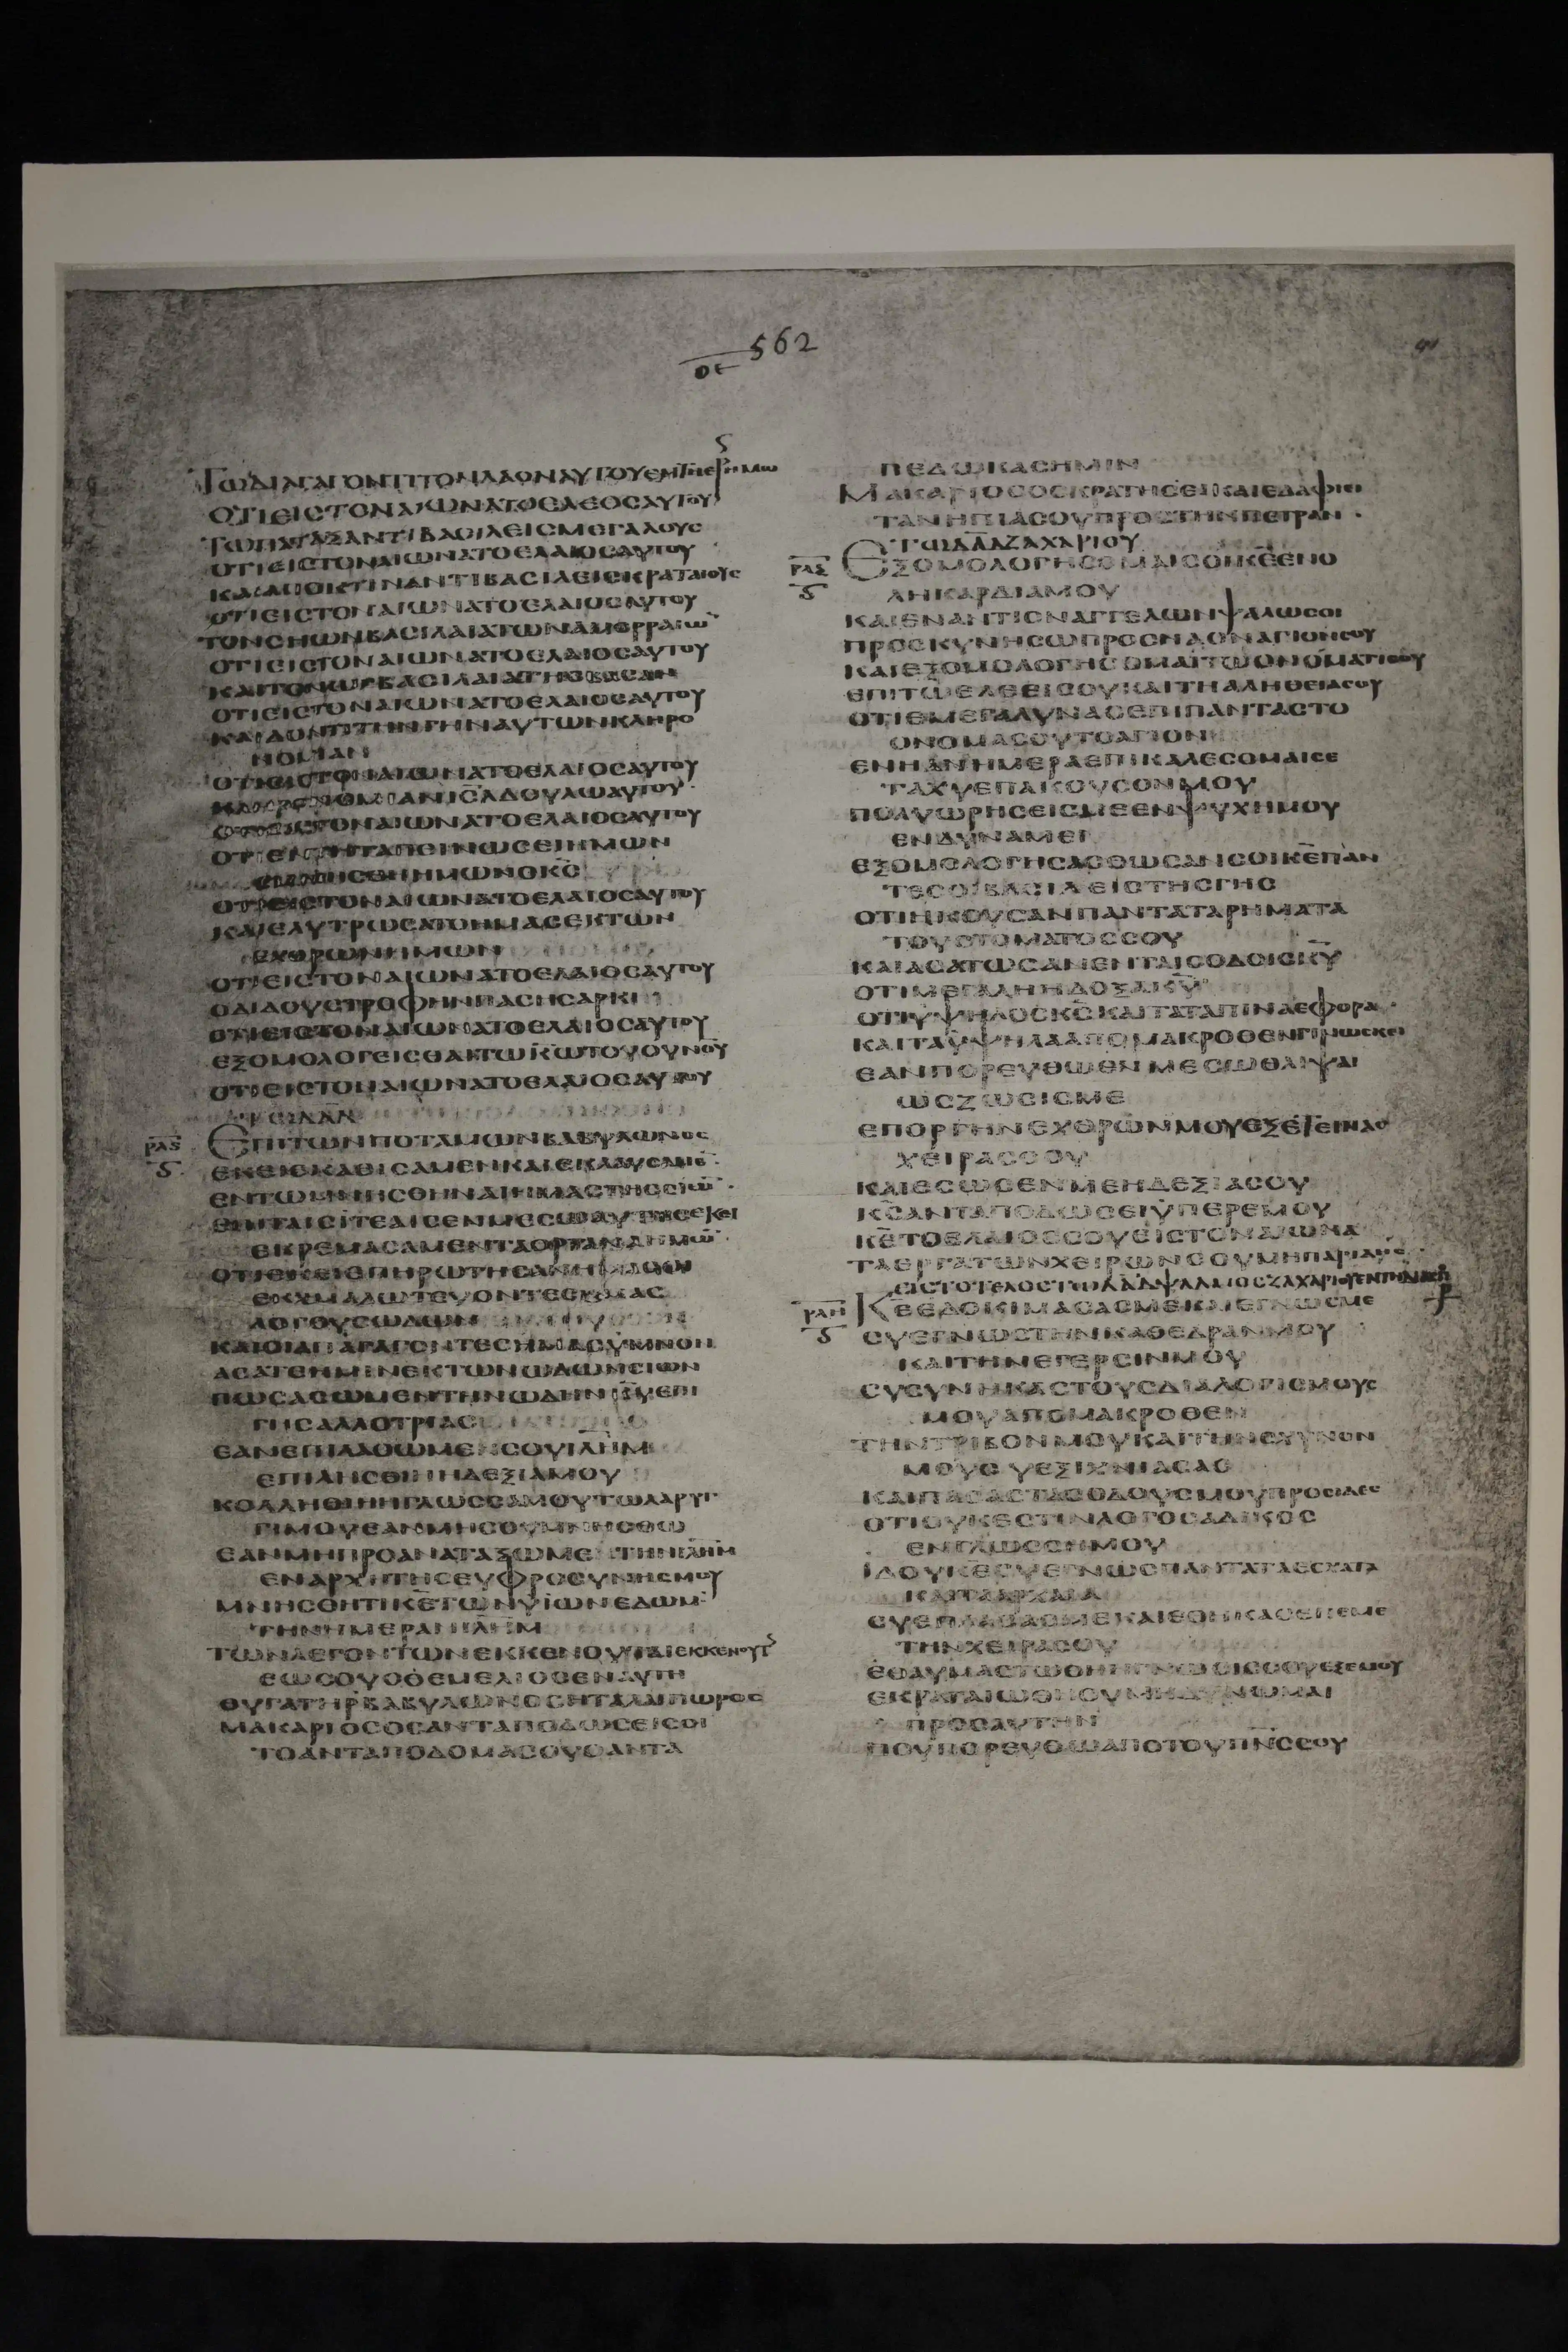 562
ΟΕ
ΤΩΔΙΑΓΑΓΟΝΤΙΤΟΝΛΑΟΝΑΥΤΟΥΕΝΤΗΕΡΗΜΩ
ΟΤΙΕΙΣΤΟΝΑΙΩΝΑΤΟΕΛΕΟΣΑΥΤΟΥ
ΤΩΠΑΤΑΞΑΝΤΙΒΑΣΙΛΕΙΣΜΕΓΑΛΟΥΣ
ΟΤΙΕΙΣΤΟΝΑΙΩΝΑΤΟΕΛΑΙΟΣΑΥΤΟΥ
ΚΑΙΑΠΟΚΤΙΝΑΝΤΙΒΑΣΙΛΕΙΣΚΡΑΤΑΙΟΥΣ
ΟΤΙΕΙΣΤΟΝΑΙΩΝΑΤΟΕΛΑΙΟΣΑΥΤΟΥ
ΤΟΝΣΗΩΝΒΑΣΙΛΑΙΑΤΩΝΑΜΟΡΡΑΙΩ̅
ΟΤΙΕΙΣΤΟΝΑΙΩΝΑΤΟΕΛΑΙΟΣΑΥΤΟΥ
ΚΑΙΤΟΝΩΓΒΑΣΙΛΑΙΑΤΗΣΒΑΣΑΝ
ΟΤΙΕΙΣΤΟΝΑΙΩΝΑΤΟΕΛΑΙΟΣΑΥΤΟΥ
ΚΑΙΔΟΝΤΙΤΗΝΓΗΝΑΥΤΩΝΚΛΗΡΟ
ΝΟΜΙΑΝ
ΟΤΙΕΙΣΤΟΝΑΙΩΝΑΤΟΕΛΑΙΟΣΑΥΤΟΥ
ΚΛΗΡΟΝΟΜΙΑΝΙΣ̅Λ̅ΔΟΥΛΩΑΥΤΟΥ
ΟΤΙΕΙΣΤΟΝΑΙΩΝΑΤΟΕΛΑΙΟΣΑΥΤΟΥ
ΟΤΙΕΝΤΗΤΑΠΕΙΝΩΣΕΙΗΜΩΝ
ΕΜΝΗΣΘΗΗΜΩΝΟΚ̅Σ̅
ΟΤΙΕΙΣΤΟΝΑΙΩΝΑΤΟΕΛΑΙΟΣΑΥΤΟΥ
ΚΑΙΕΛΥΤΡΩΣΑΤΟΗΜΑΣΕΚΤΩΝ
ΕΧΘΡΩΝΗΜΩΝ
ΟΤΙΕΙΣΤΟΝΑΙΩΝΑΤΟΕΛΑΙΟΣΑΥΤΟΥ
ΟΔΙΔΟΥΣΤΡΟΦΗΝΠΑΣΗΣΑΡΚΙ
ΟΤΙΕΙΣΤΟΝΑΙΩΝΑΤΟΕΛΑΙΟΣΑΥΤΟΥ
ΕΞΟΜΟΛΟΓΕΙΣΘΑΙΤΩΚ̅Ω̅ΤΟΥΟΥΝΟΥ
ΟΤΙΕΙΣΤΟΝΑΙΩΝΑΤΟΕΛΑΙΟΣΑΥΤΟΥ
ΤΩΔ̅Α̅Δ̅
ΡΛϚ ΕΠΙΤΩΝΠΟΤΑΜΩΝΒΑΒΥΛΩΝΟΣ
ΕΚΕΙΕΚΑΘΙΣΑΜΕΝΚΑΙΕΚΛΑΥΣΑΜΕ̅
ΕΝΤΩΜΝΗΣΘΗΝΑΙΗΜΑΣΤΗΣΣΙΩ̅
ΕΝΤΑΙΣΙΤΕΑΙΣΕΝΜΕΣΩΑΥΤΗΣΕΚΕΙ
ΕΚΡΕΜΑΣΑΜΕΝΤΑΟΡΓΑΝΑΗΜΩ̅
ΟΤΙΕΚΕΙΕΠΗΡΩΤΗΣΑΝΗΜΑΣΟΙ
ΕΧΜΑΛΩΤΕΥΟΝΤΕΣΗΜΑΣ
ΛΟΓΟΥΣΩΔΩΝ
ΚΑΙΟΙΑΠΑΓΑΓΟΝΤΕΣΗΜΑΣΥΜΝΟΝ
ΑΣΑΤΕΗΜΙΝΕΚΤΩΝΩΔΩΝΣΙΩΝ
ΠΩΣΑΣΩΜΕΝΤΗΝΩΔΗΝΚ̅Υ̅ΕΠΙ
ΓΗΣΑΛΛΟΤΡΙΑΣ
ΕΑΝΕΠΙΛΑΘΩΜΕΝΣΟΥΙΛ̅Η̅Μ̅
ΕΠΙΛΗΣΘΙΗΗΔΕΞΙΑΜΟΥ
ΚΟΛΛΗΘΙΗΗΓΛΩΣΣΑΜΟΥΤΩΛΑΡΥΓ
ΓΙΜΟΥΕΑΝΜΗΣΟΥΜΝΗΣΘΩ
ΕΑΝΜΗΠΡΟΑΝΑΤΑΞΩΜΕΤΗΝΙΛ̅Η̅Μ̅
ΕΝΑΡΧΗΤΗΣΕΥΦΡΟΣΥΝΗΣΜΟΥ
ΜΝΗΣΘΗΤΙΚ̅Ε̅ΤΩΝΥΙΩΝΕΔΩΜ
ΤΗΝΗΜΕΡΑΝΙΛ̅Η̅Μ̅
ΤΩΝΛΕΓΟΝΤΩΝΕΚΚΕΝΟΥΤΑΙΕΚΚΕΝΟΥΤΕ
ΕΩΣΟΥΟΘΕΜΕΛΙΟΣΕΝΑΥΤΗ
ΘΥΓΑΤΗΡΒΑΒΥΛΩΝΟΣΗΤΑΛΑΙΠΩΡΟΣ
ΜΑΚΑΡΙΟΣΟΣΑΝΤΑΠΟΔΩΣΕΙΣΟΙ
ΤΟΑΝΤΑΠΟΔΟΜΑΣΟΥΟΑΝΤΑ
ΠΕΔΩΚΑΣΗΜΙΝ
ΜΑΚΑΡΙΟΣΟΣΚΡΑΤΗΣΕΙΚΑΙΕΔΑΦΙΕΙ
ΤΑΝΗΠΙΑΣΟΥΠΡΟΣΤΗΝΠΕΤΡΑΝ
ΤΩΔ̅Α̅Δ̅ΖΑΧΑΡΙΟΥ
ΡΛΖ ΕΞΟΜΟΛΟΓΗΣΟΜΑΙΣΟΙΚ̅Ε̅ΕΝΟ
ΛΗΚΑΡΔΙΑΜΟΥ
ΚΑΙΕΝΑΝΤΙΟΝΑΓΓΕΛΩΝΨΑΛΩΣΟΙ
ΠΡΟΣΚΥΝΗΣΩΠΡΟΣΝΑΟΝΑΓΙΟΝΣΟΥ
ΚΑΙΕΞΟΜΟΛΟΓΗΣΟΜΑΙΤΩΟΝΟΜΑΤΙΣΟΥ
ΕΠΙΤΩΕΛΕΕΙΣΟΥΚΑΙΤΗΑΛΗΘΕΙΑΣΟΥ
ΟΤΙΕΜΕΓΑΛΥΝΑΣΕΠΙΠΑΝΤΑΣΤΟ
ΟΝΟΜΑΣΟΥΤΟΑΓΙΟΝ
ΕΝΗΑΝΗΜΕΡΑΕΠΙΚΑΛΕΣΟΜΑΙΣΕ
ΤΑΧΥΕΠΑΚΟΥΣΟΝΜΟΥ
ΠΟΛΥΩΡΗΣΕΙΣΜΕΕΝΨΥΧΗΜΟΥ
ΕΝΔΥΝΑΜΕΙ
ΕΞΟΜΟΛΟΓΗΣΑΣΘΩΣΑΝΣΟΙΚ̅Ε̅ΠΑΝ
ΤΕΣΟΙΒΑΣΙΛΕΙΣΤΗΣΓΗΣ
ΟΤΙΗΚΟΥΣΑΝΠΑΝΤΑΤΑΡΗΜΑΤΑ
ΤΟΥΣΤΟΜΑΤΟΣΣΟΥ
ΚΑΙΑΣΑΤΩΣΑΝΕΝΤΑΙΣΟΔΟΙΣΚ̅Υ̅
ΟΤΙΜΕΓΑΛΗΗΔΟΞΑΚ̅Υ̅
ΟΤΙΥΨΗΛΟΣΚ̅Σ̅ΚΑΙΤΑΤΑΠΙΝΑΕΦΟΡΑ
ΚΑΙΤΑΥΨΗΛΑΑΠΟΜΑΚΡΟΘΕΝΓΙΝΩΣΚΕΙ
ΕΑΝΠΟΡΕΥΘΩΕΝΜΕΣΩΘΛΙΨΑΙ
ΩΣΖΩΣΙΣΜΕ
ΕΠΟΡΓΗΝΕΧΘΡΩΝΜΟΥΕΞΕΤΕΙΝΑΣ
ΧΕΙΡΑΣΣΟΥ
ΚΑΙΕΣΩΣΕΝΜΕΗΔΕΞΙΑΣΟΥ
Κ̅Σ̅ΑΝΤΑΠΟΔΩΣΕΙΥΠΕΡΕΜΟΥ
Κ̅Ε̅ΤΟΕΛΑΙΟΣΣΟΥΕΙΣΤΟΝΑΙΩΝΑ
ΤΑΕΡΓΑΤΩΝΧΕΙΡΩΝΣΟΥΜΗΠΑΡΙΔΗΣ
ΕΙΣΤΟΤΕΛΟΣΤΩΔ̅Α̅Δ̅ΨΑΛΜΟΣΖΑΧΑΡΙΟΥΕΝΤΗΔΙΑΣΠΟΡΑ
ΡΛΗ Κ̅Ε̅ΕΔΟΚΙΜΑΣΑΣΜΕΚΑΙΕΓΝΩΣΜΕ
ΣΥΕΓΝΩΣΤΗΝΚΑΘΕΔΡΑΝΜΟΥ
ΚΑΙΤΗΝΕΓΕΡΣΙΝΜΟΥ
ΣΥΣΥΝΗΚΑΣΤΟΥΣΔΙΑΛΟΓΙΣΜΟΥΣ
ΜΟΥΑΠΟΜΑΚΡΟΘΕΝ
ΤΗΝΤΡΙΒΟΝΜΟΥΚΑΙΤΗΝΣΧΥΝΟΝ
ΜΟΥΣΥΕΞΙΧΝΙΑΣΑΣ
ΚΑΙΠΑΣΑΣΤΑΣΟΔΟΥΣΜΟΥΠΡΟΕΙΔΕΣ
ΟΤΙΟΥΚΕΣΤΙΝΛΟΓΟΣΑΔΙΚΟΣ
ΕΝΓΛΩΣΣΗΜΟΥ
ΙΔΟΥΚ̅Ε̅ΣΥΕΓΝΩΣΠΑΝΤΑΤΑΕΣΧΑΤΑ
ΚΑΙΤΑΑΡΧΑΙΑ
ΣΥΕΠΛΑΣΑΣΜΕΚΑΙΕΘΗΚΑΣΕΠΕΜΕ
ΤΗΝΧΕΙΡΑΣΟΥ
ΕΘΑΥΜΑΣΤΩΘΗΗΓΝΩΣΙΣΣΟΥΕΞΕΜΟΥ
ΕΚΡΑΤΑΙΩΘΗΟΥΜΗΔΥΝΩΜΑΙ
ΠΡΟΣΑΥΤΗΝ
ΠΟΥΠΟΡΕΥΘΩΑΠΟΤΟΥΠ̅Ν̅Σ̅ΣΟΥ